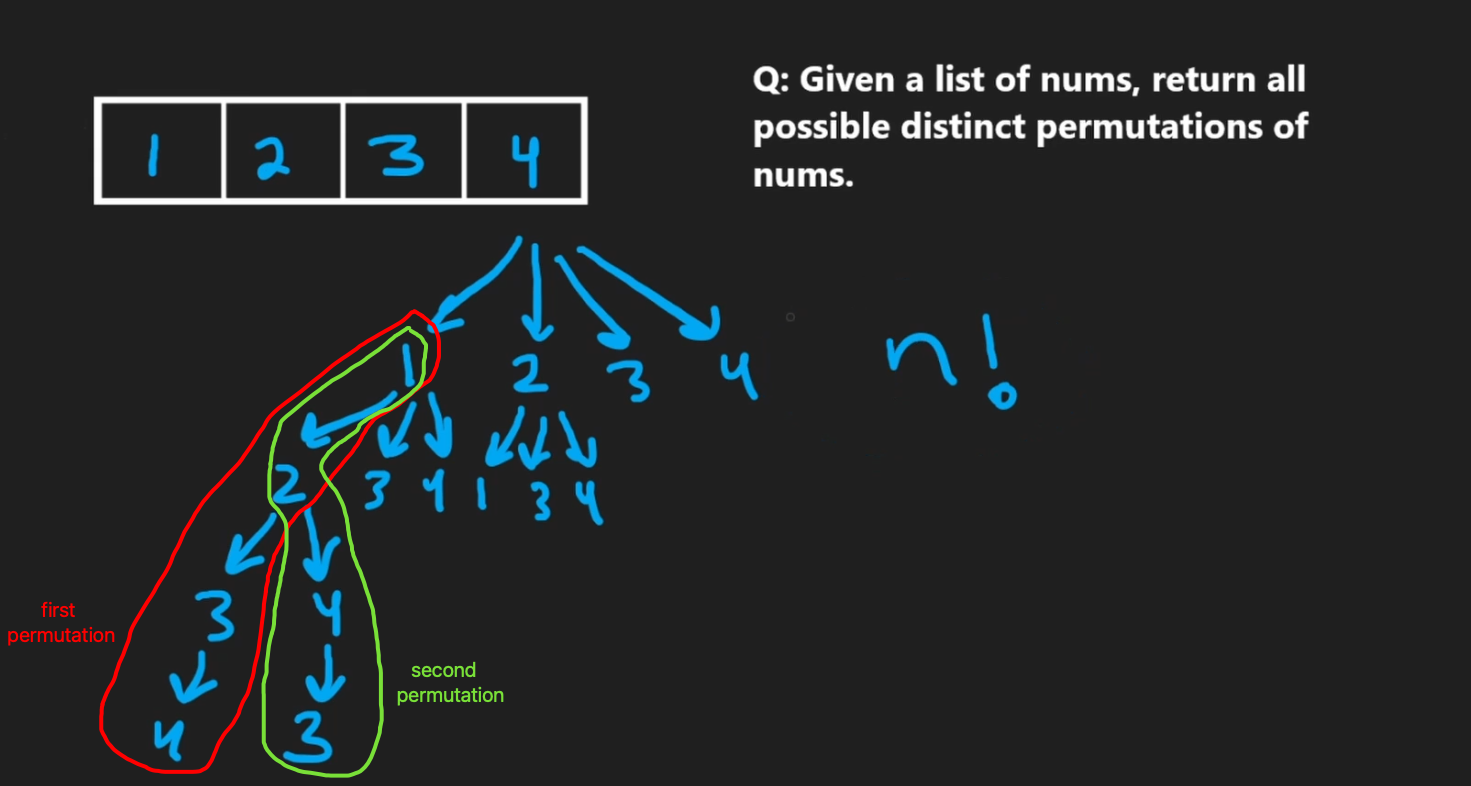 Q: Given a list of nums, return all
possible distinct permutations of
nums.
1 2 3 4
1 2 3 4
n!
2 3 4 1 3 4
3 4
first
permutation
second
permutation
4 3